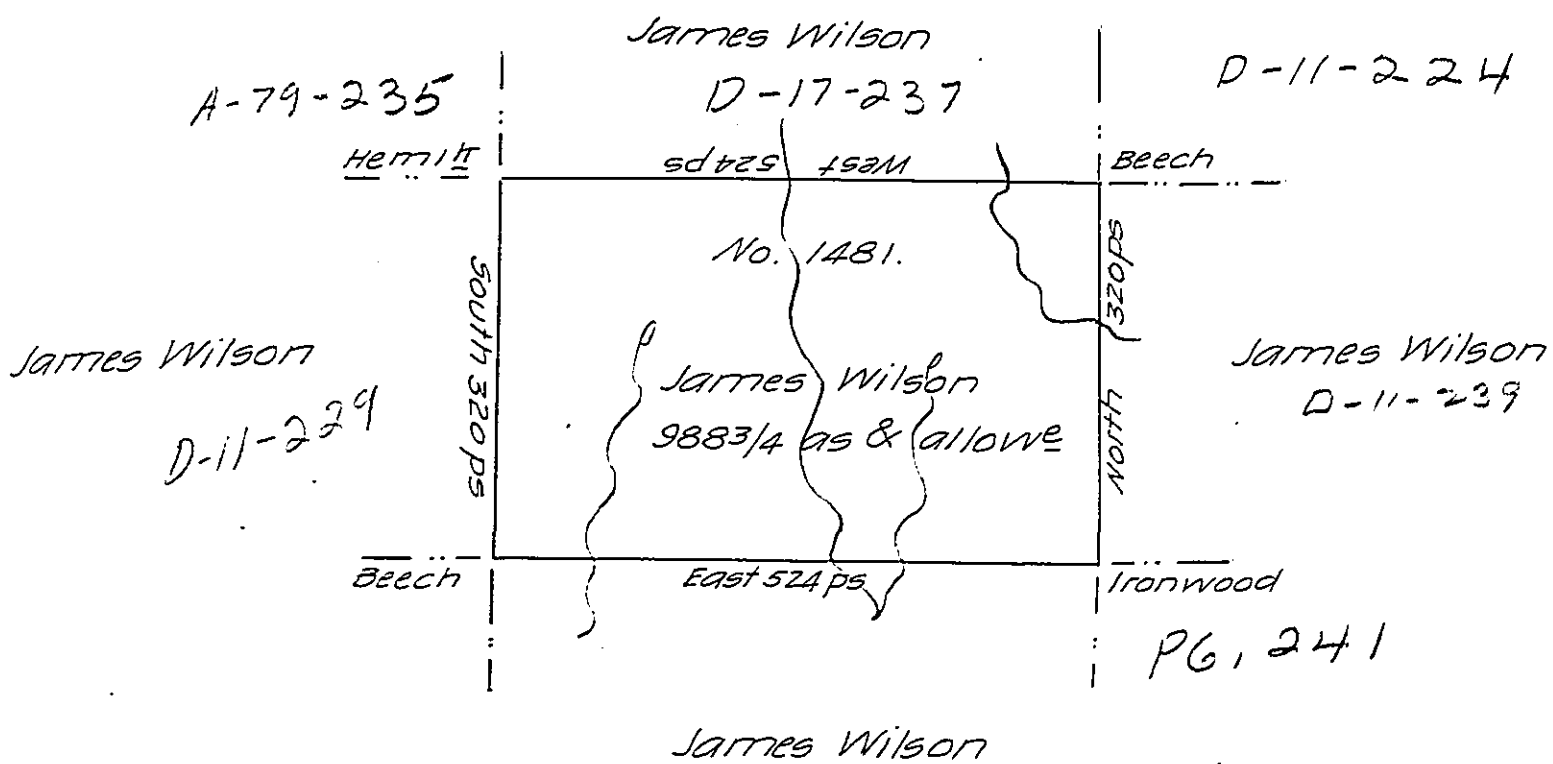 James Wilson
D-17-237
A-79-235
D-11-224
Hemlk
West 524 ps
Beech
No. 1481.
South 320 ps
North 320 ps
James Wilson
D-11-229
James Wilson
988 3/4 as & allowe
James Wilson
D-11-239
Beech
East 524 ps
Ironwood
PG, 241
James Wilson